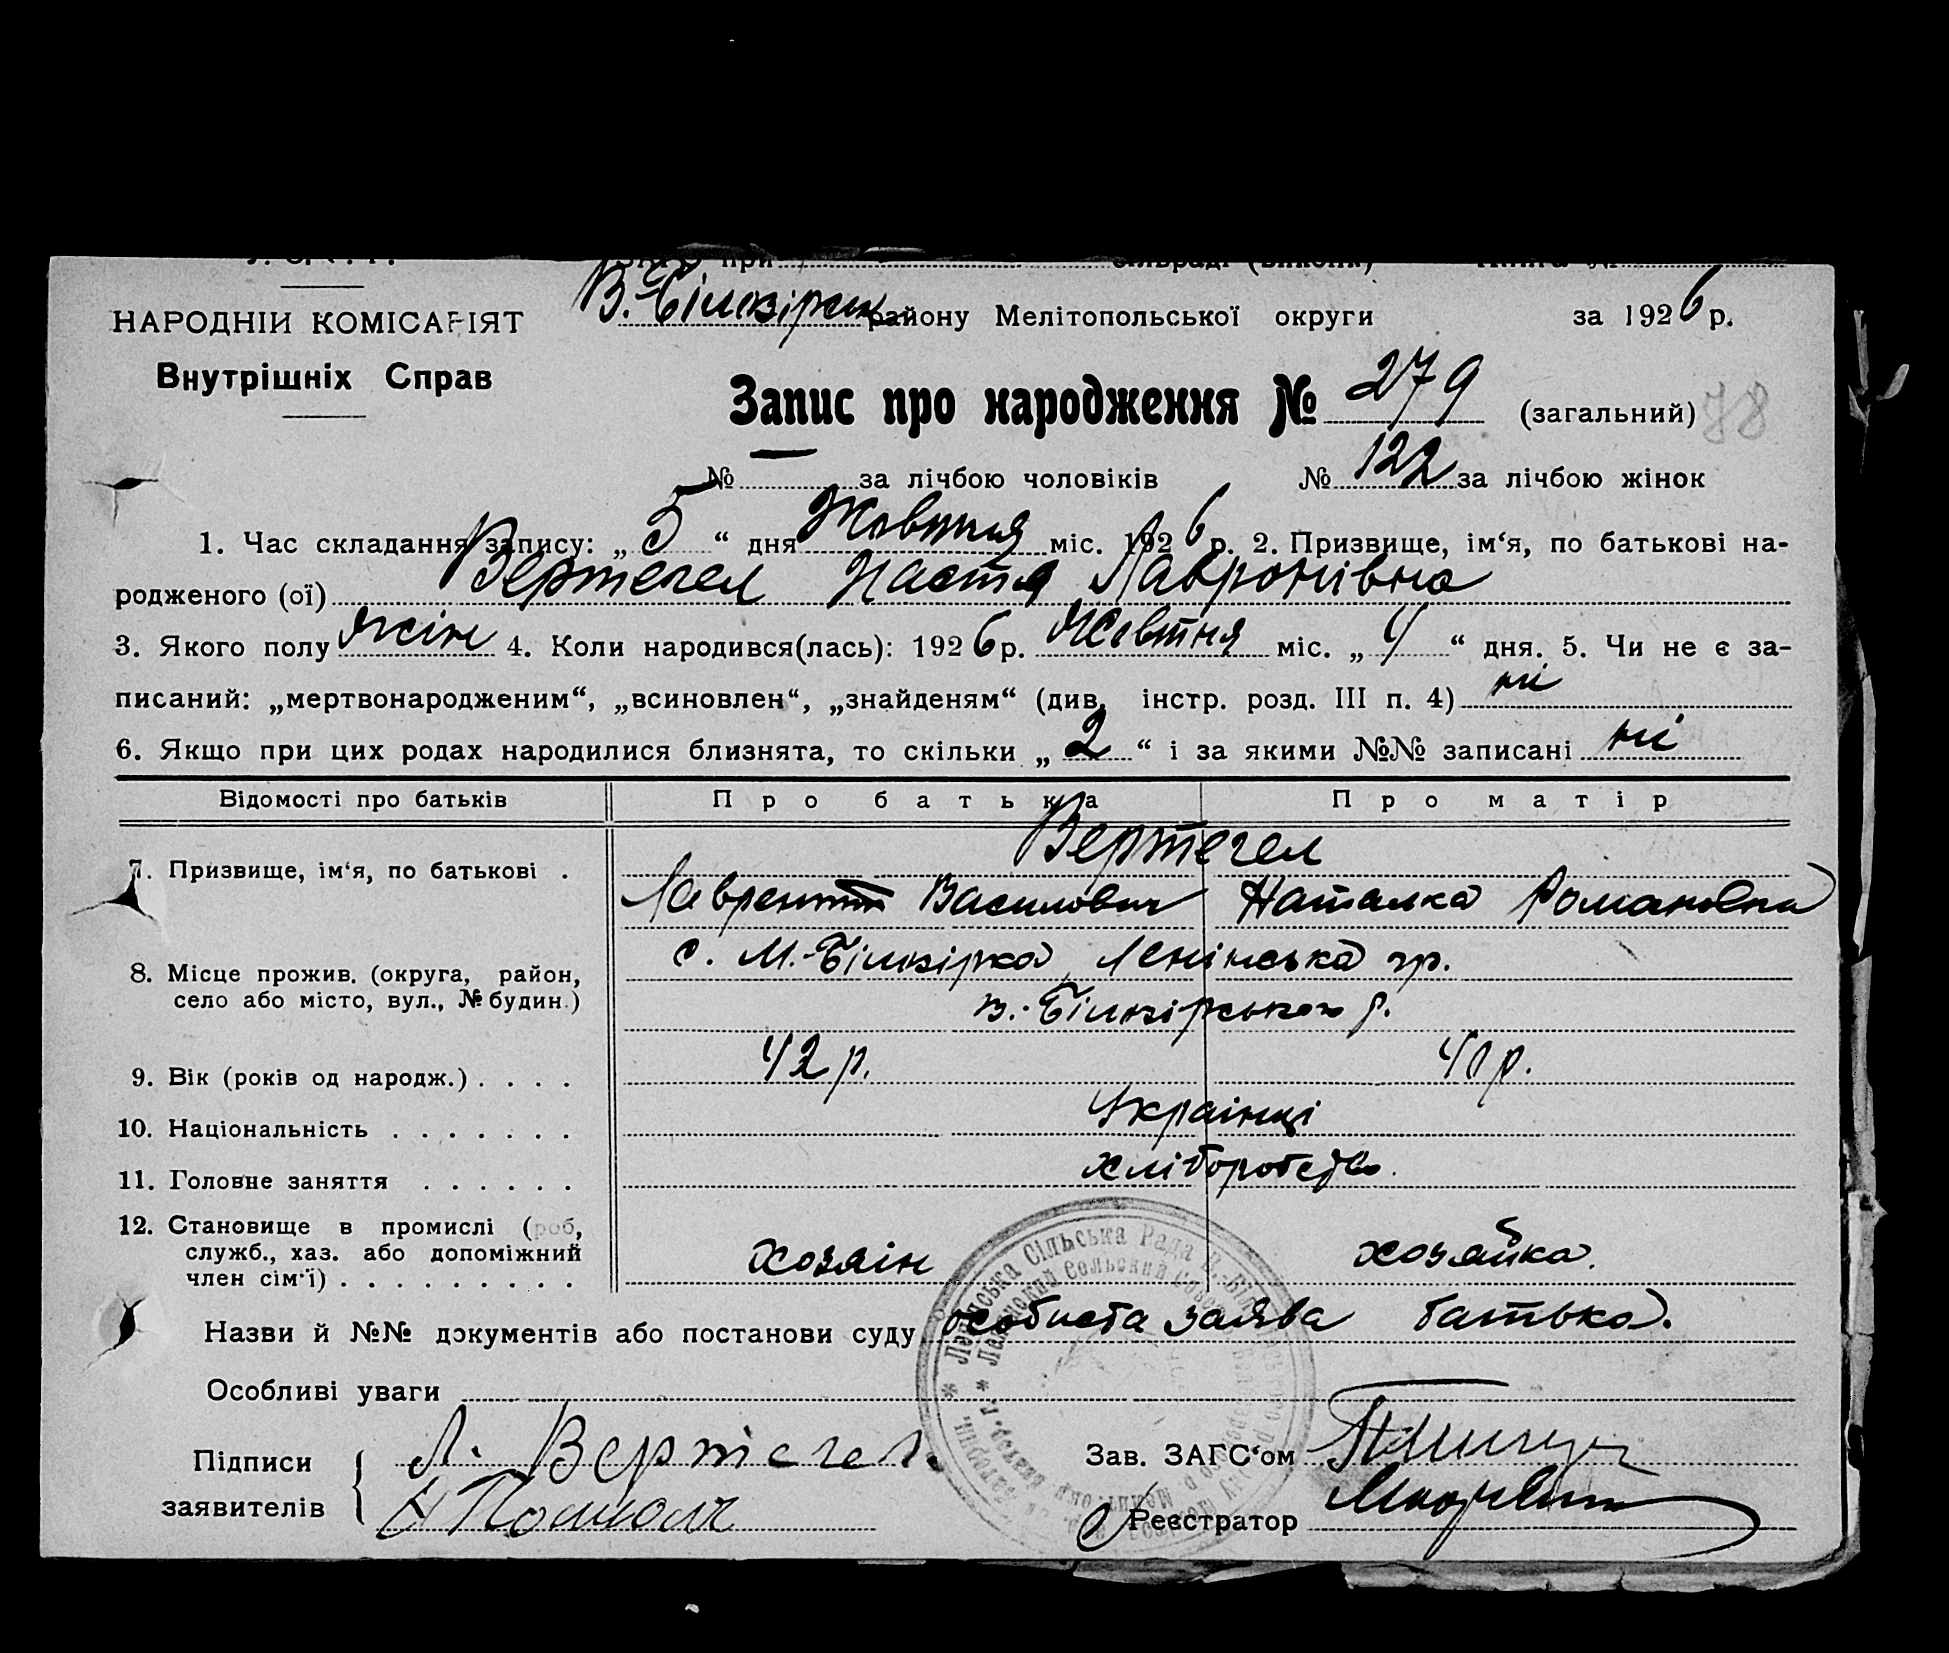 В.-Білозірськ району Мелітопольської округи за 1926 р.
НАРОДНІЙ КОМІСАРІЯТ
Внутрішніх Справ
Запис про народження № 279 (загальний) 78
№ — за лічбою чоловіків № 122 за лічбою жінок
1. Час складання запису: „ 5 “ дня Жовтня міс. 1926 р. 2. Призвище, ім‘я, по батькові на-
родженого (ої) Вертегел Настя Лавронівна
3. Якого полу жін 4. Коли народився(лась): 1926 р. Жовтня міс. „ 4 “ дня. 5. Чи не є за-
писаний: „мертвонародженим“, „всиновлен“, „знайденям“ (див. інстр. розд. III п. 4) ні
6. Якщо при цих родах народилися близнята, то скільки „ 2 “ і за якими №№ записані ні
Відомості про батьків Про батька Про матір
Вертегел
7. Призвище, ім‘я, по батькові .
Лаврентт Василович Наталка Романовна
с. М.-Білозірка Ленінська гр.
8. Місце прожив. (округа, район,
село або місто, вул., № будин.)
в.-Білозірського р.
9. Вік (років од народж.) . . . . 42 р. 41 р.
10. Національність . . . . . . . Українці
11. Головне заняття . . . . . . хліборобство.
12. Становище в промислі (роб,
служб., хаз. або допоміжний
член сім‘ї) . . . . . . . . . хозяін хозяйка.
Назви й №№ документів або постанови суду особиста заява батька.
Особливі уваги
Підписи
заявителів
Л. Вертегел.
Зав. ЗАГС‘ом
Реєстратор
Сільська Рада
Сельский Совет